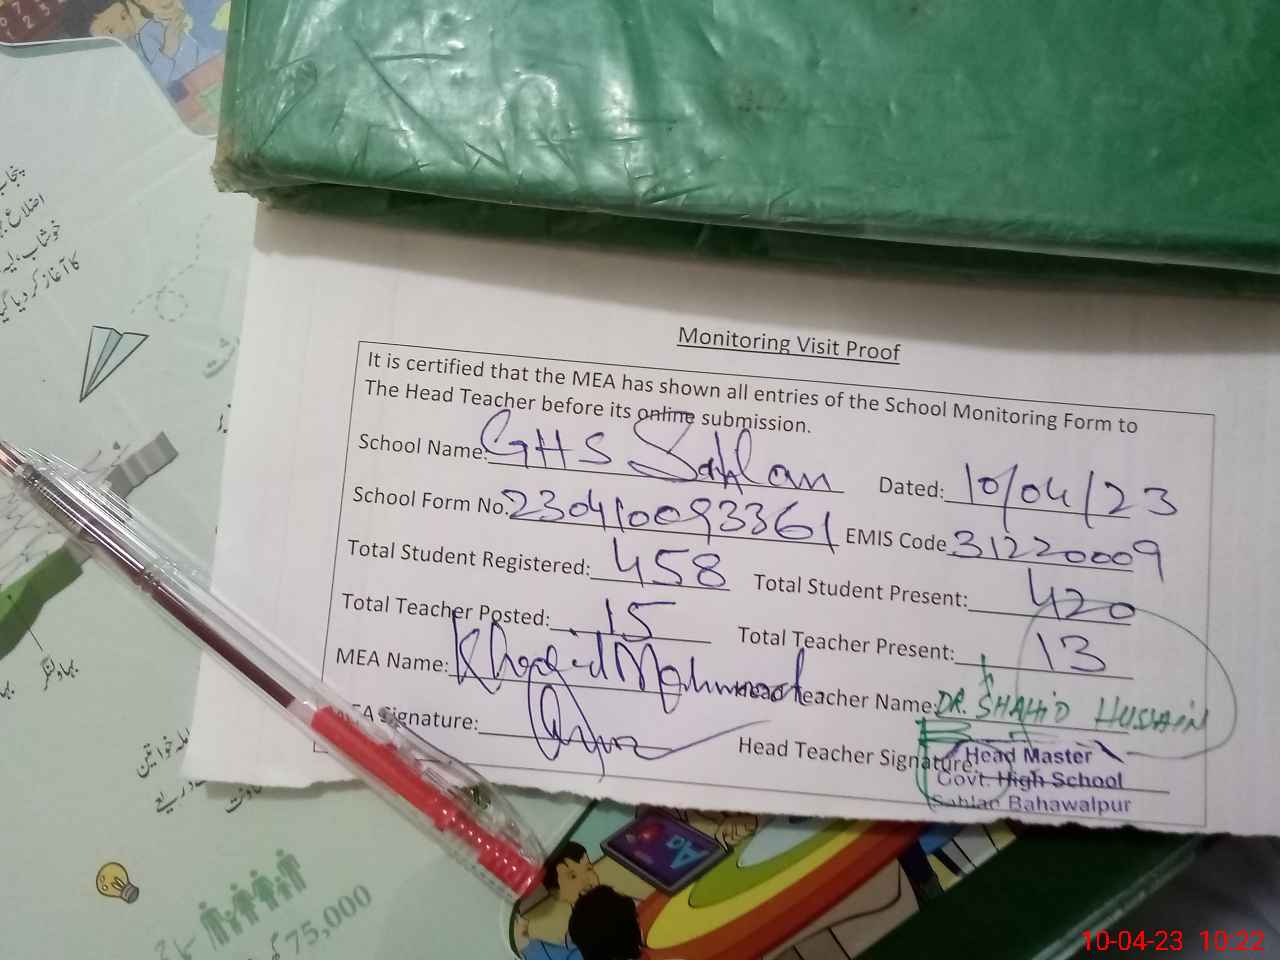 پنجاب
اضلاع
خوشاب، لیہ
کا آغاز کر دیا گیا
Monitoring Visit Proof
It is certified that the MEA has shown all entries of the School Monitoring Form to
The Head Teacher before its online submission.
School Name: GHS Sahlan Dated: 10/04/23
School Form No. 230410093361 EMIS Code 31220009
Total Student Registered: 458 Total Student Present: 420
Total Teacher Posted: 15 Total Teacher Present: 13
MEA Name: Khalid Mahmood Head Teacher Name: DR. SHAHID HUSSAIN
MEA Signature: Head Teacher Signature
Head Master
Govt. High School
Sahlan Bahawalpur
بہاولنگر
75,000
10-04-23 10:22